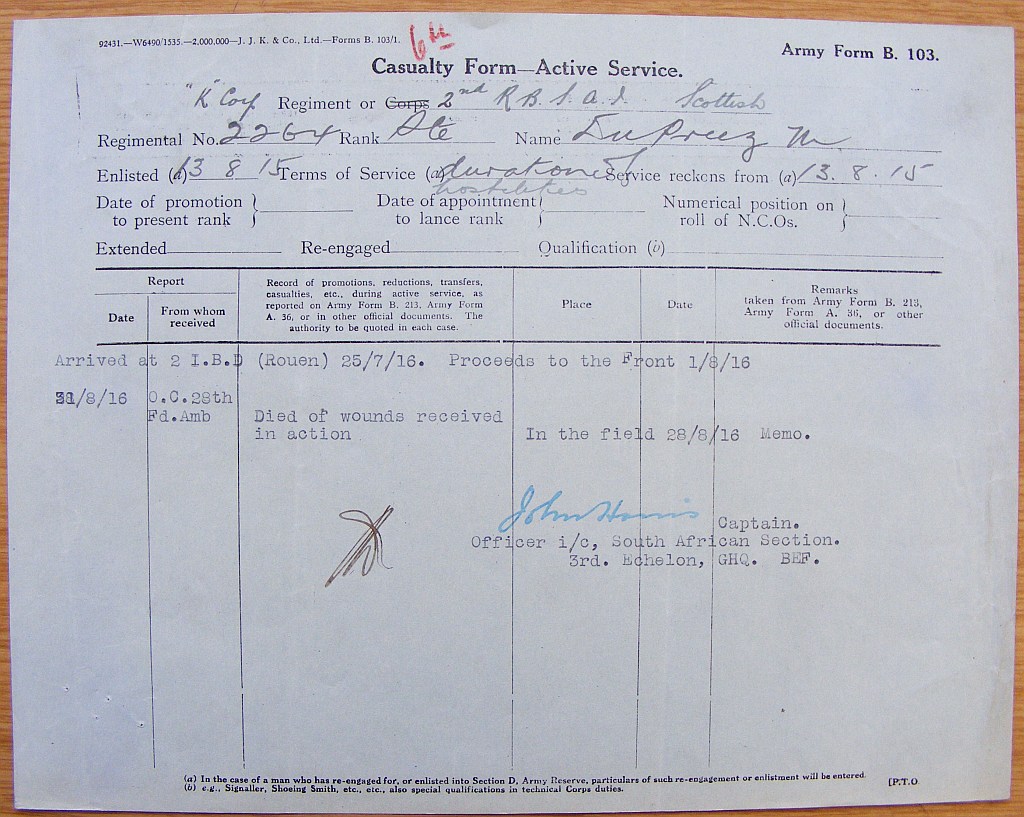 92431.—W6490/1535.—2,000,000—J. J. K. & Co., Ltd.—Forms B. 103/1.
6th
Army Form B. 103.
Casualty Form—Active Service.
"K" Coy Regiment or Corps 2nd R B. S. A. I. Scottish
Regimental No. 2264 Rank Pte Name Du Preez M
Enlisted (a) 13 8 15 Terms of Service (a) duration of Service reckons from (a) 13. 8. 15
hostilities
Date of promotion to present rank } Date of appointment to lance rank } Numerical position on roll of N.C.Os. }
Extended Re-engaged Qualification (b)
Report
Date
From whom received
Record of promotions, reductions, transfers,
casualties, etc., during active service, as
reported on Army Form B. 213, Army Form
A. 36, or in other official documents. The
authority to be quoted in each case.
Place
Date
Remarks
taken from Army Form B. 213,
Army Form A. 36, or other
official documents.
Arrived at 2 I.B.D (Rouen) 25/7/16. Proceeds to the Front 1/8/16
31/8/16 O.C.28th
Fd.Amb Died of wounds received
in action In the field 28/8/16 Memo.
John Harris Captain.
Officer i/c, South African Section.
3rd. Echelon, GHQ. BEF.
(a) In the case of a man who has re-engaged for, or enlisted into Section D, Army Reserve, particulars of such re-engagement or enlistment will be entered.
(b) e.g., Signaller, Shoeing Smith, etc., etc., also special qualifications in technical Corps duties.
[P.T.O